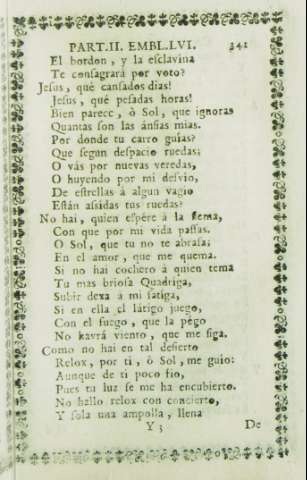 PART.II. EMBL.LVI. 341
El bordon, y la esclavina
Te consagrará por voto?
Jesus, qué cansados dias!
Jesus, qué pesadas horas!
Bien parece, ò Sol, que ignoras
Quantas son las ánsias mias.
Por donde tu carro guias?
Que segun despacio ruedas;
O vás por nuevas veredas,
O huyendo por mi desvio,
De estrellas à algun vagio
Están assidas tus ruedas?
No hai, quien espére à la flema,
Con que por mi vida passas.
O Sol, que tu no te abrasas;
En el amor, que me quema.
Si no hai cochero à quien tema
Tu mas briosa Quadriga,
Subir dexa à mi fatiga,
Si en ella el látigo juego,
Con el fuego, que la pego
No havrá viento, que me siga.
Como no hai en tal desierto
Relox, por ti, ò Sol, me guio:
Aunque de ti poco fio,
Pues tu luz se me ha encubierto.
No hallo relox con concierto,
Y sola una ampolla, llena
Y 3 De